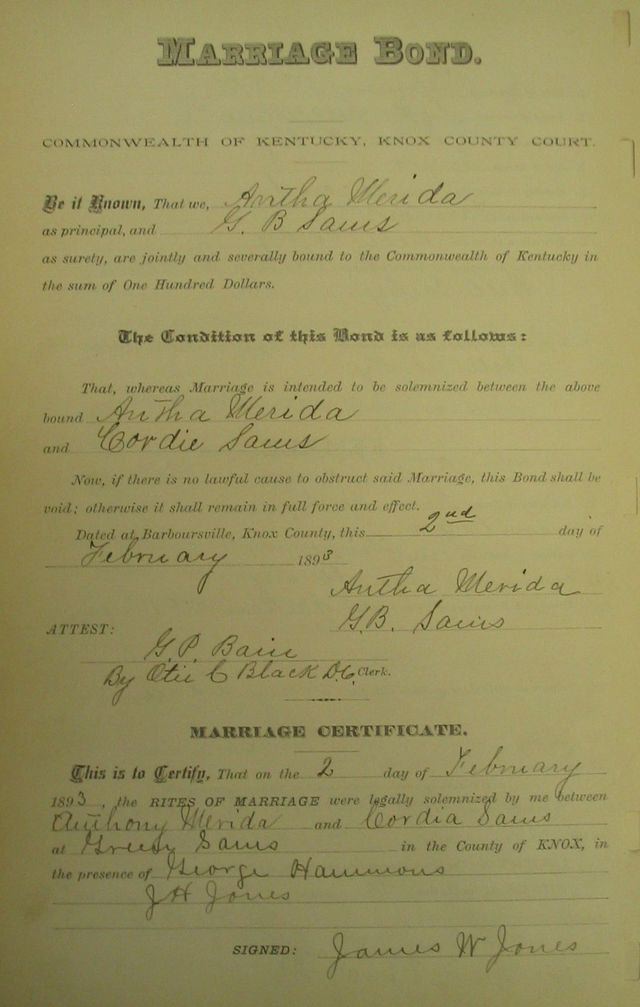 MARRIAGE BOND.
COMMONWEALTH OF KENTUCKY, KNOX COUNTY COURT.
Be it Known, That we, Antha Merida
as principal, and G. B Sams
as surety, are jointly and severally bound to the Commonwealth of Kentucky in
the sum of One Hundred Dollars.
The Condition of this Bond is as follows:
That, whereas Marriage is intended to be solemnized between the above
bound Antha Merida
and Cordie Sams
Now, if there is no lawful cause to obstruct said Marriage, this Bond shall be
void; otherwise it shall remain in full force and effect.
Dated at Barboursville, Knox County, this 2nd day of
February 1893
Antha Merida
ATTEST: G.B. Sams
G.P. Bain
By Black D.C. Clerk.
MARRIAGE CERTIFICATE.
This is to Certify, That on the 2 day of February
1893, the RITES OF MARRIAGE were legally solemnized by me between
Anthony Merida and Cordia Sams
at Green Sams in the County of KNOX, in
the presence of George Hammons
J H Jones
SIGNED: James W Jones